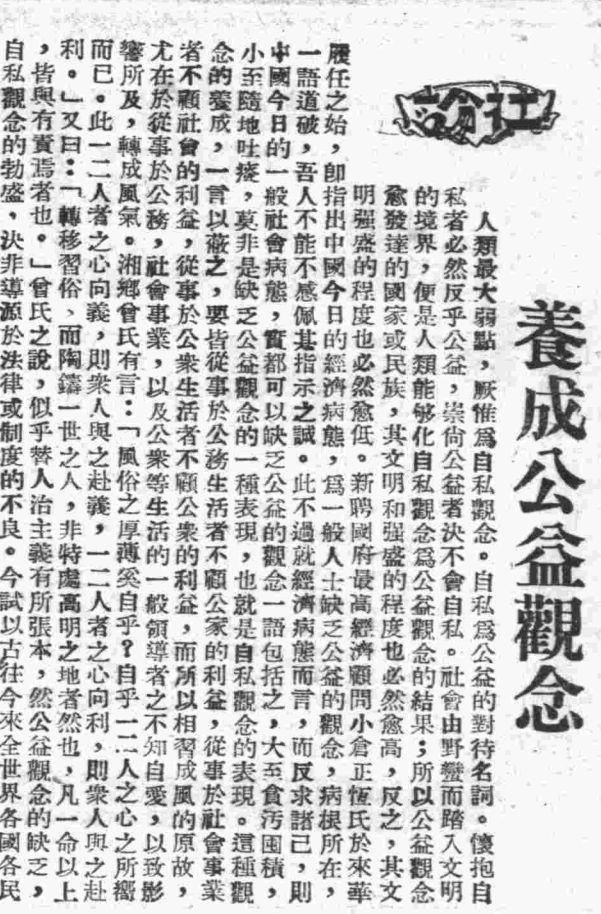 社論
養成公益觀念
人類最大弱點，厥惟爲自私觀念。自私爲公益的對待名詞。懷抱自
私者必然反乎公益，崇尙公益者決不會自私。社會由野蠻而踏入文明
的境界，便是人類能够化自私觀念爲公益觀念的結果；所以公益觀念
愈發達的國家或民族，其文明和强盛的程度也必然愈高，反之，其文
明强盛的程度也必然愈低。新聘國府最高經濟顧問小倉正恆氏於來華
履任之始，卽指出中國今日的經濟病態，爲一般人士缺乏公益的觀念，病根所在，
一語道破，吾人不能不感佩其指示之誠。此不過就經濟病態而言，而反求諸已，則
中國今日的一般社會病態，實都可以缺乏公益的觀念一語包括之，大至貪汚囤積，
小至隨地吐痰，莫非是缺乏公益觀念的一種表現，也就是自私觀念的表現。這種觀
念的養成，一言以蔽之，要皆從事於公務生活者不顧公家的利益，從事於社會事業
者不顧社會的利益，從事於公衆生活者不顧公衆的利益，而所以相習成風的原故，
尤在於從事於公務，社會事業，以及公衆等生活的一般領導者之不知自愛，以致影
響所及，轉成風氣。湘鄉曾氏有言：「風俗之厚薄奚自乎？自乎一二人之心之所嚮
而已。此一二人者之心向義，則衆人與之赴義，一二人者之心向利，則衆人與之赴
利。」又曰：「轉移習俗、而陶鑄一世之人，非特處高明之地者然也，凡一命以上
，皆與有責焉者也。」曾氏之說，似乎替人治主義有所張本，然公益觀念的缺乏，
自私觀念的勃盛，決非導源於法律或制度的不良。今試以古往今來全世界各國各民